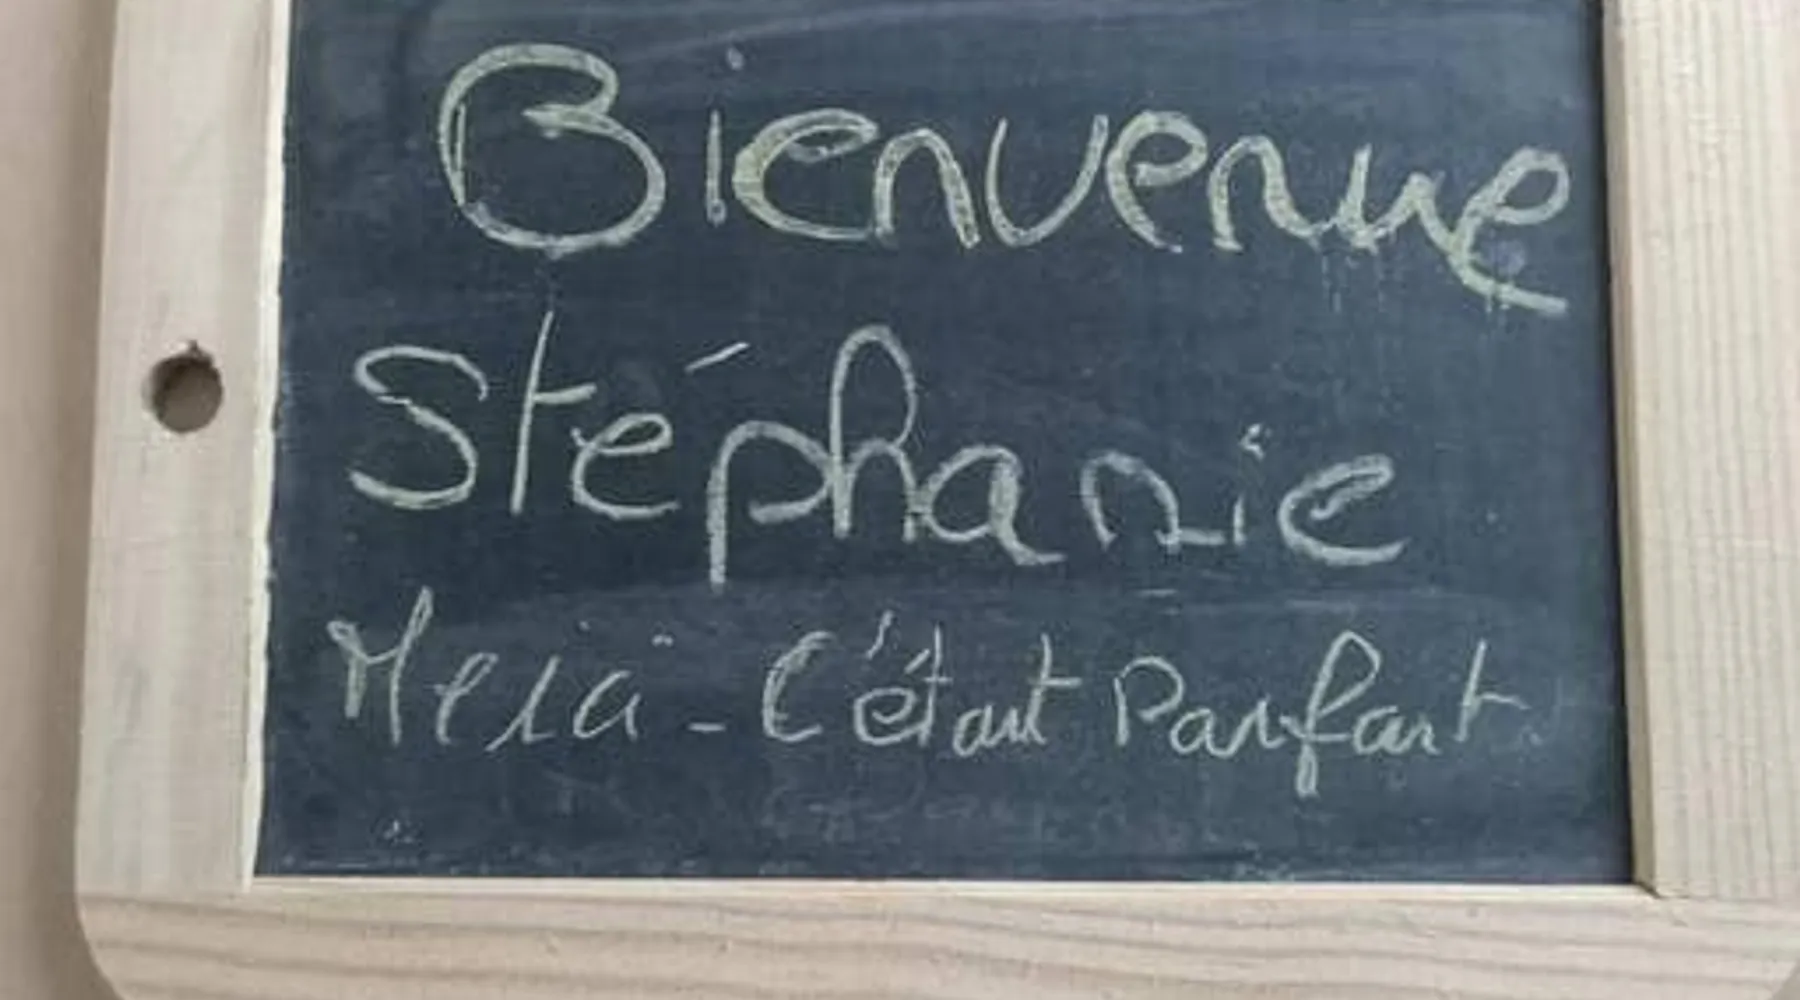 Bienvenue
Stéphanie
Merci - C'était Parfait